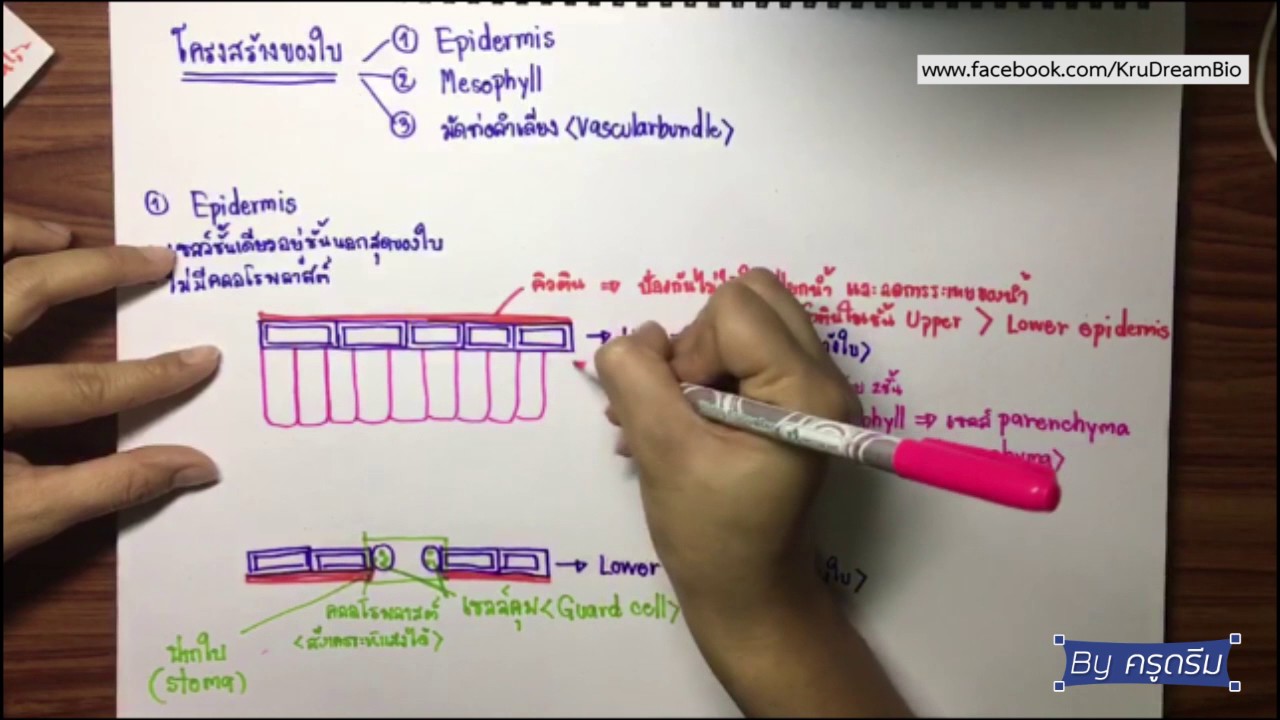 www.facebook.com/KruDreamBio
โครงสร้างของใบ
① Epidermis
② Mesophyll
③ มัดท่อลำเลียง <Vascularbundle>
① Epidermis
เซลล์ชั้นเดียวอยู่ชั้นนอกสุดของใบ
ไม่มีคลอโรพลาสต์
คิวติน ⇒ ป้องกันไม่ให้ และลดการระเหยของน้ำ
Upper > Lower epidermis
2ชั้น
⇒ เซลล์ parenchyma
Lower
คลอโรพลาสต์
<สังเคราะห์แสงได้>
เซลล์คุม <Guard cell>
ปากใบ
(stoma)
By ครูดรีม